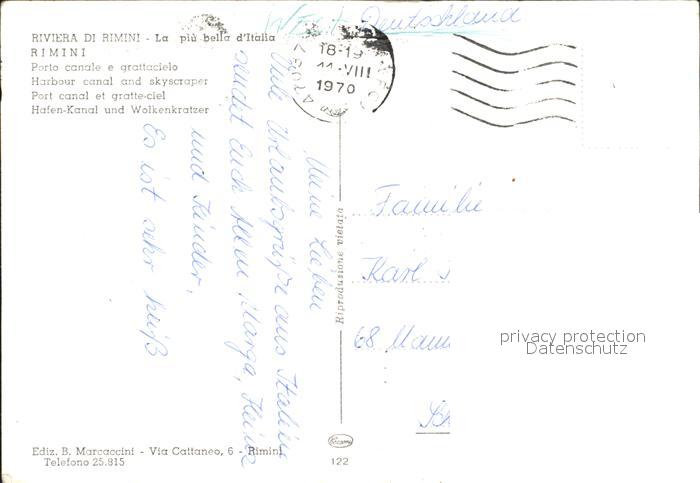 West-Deutschland
RIVIERA DI RIMINI - La più bella d'Italia
RIMINI
Porto canale e grattacielo
Harbour canal and skyscraper
Port canal et gratte-ciel
Hafen-Kanal und Wolkenkratzer
18-19
11-VIII
1970
Meine Lieben
Viele Urlaubsgrüße aus Italien
sendet Euch Allen Marga, Heinz
und Kinder.
Es ist sehr heiß
Riproduzione vietata
Familie
Karl
68 Mann
privacy protection
Datenschutz
Ediz. B. Marcaccini - Via Cattaneo, 6 - Rimini
Telefono 25.815
122